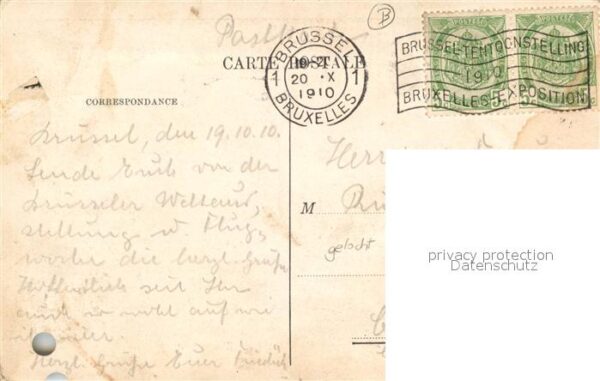 Postkarte
CARTE POSTALE
B
BRUSSEL
1 20 X 1
1910
BRUXELLES
BRUSSEL-TENTOONSTELLING
1910
BRUXELLES-EXPOSITION
POSTES POSTES
5c 5c
CORRESPONDANCE
Brüssel, den 19.10.10.
Sende Euch von der
Brüsseler Weltaus,
stellung u. Flug,
woche die herzl. Grüße
Hoffentlich seit Ihr
auch so wohl auf wie
Herzl. Grüße Euer Friedrich
Herrn
M
gelocht
privacy protection
Datenschutz